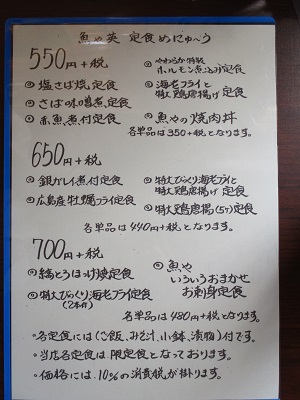 魚や英 定食めにゅ〜う
550円+税
◎塩さば焼定食
◎さば味噌煮定食
◎赤魚煮付定食
◎やわらか特製
ホルモン煮込み定食
◎海老フライと
特大鶏唐揚げ定食
◎魚やの焼肉丼
各単品は350+税となります。
650円+税
◎銀ガレイ煮付定食
◎広島産牡蠣フライ定食
◎特大びっくり海老フライと
特大鶏唐揚げ定食
◎特大鶏唐揚(5ヶ)定食
各単品は440円+税となります。
700円+税
◎縞とろほっけ焼定食
◎特大びっくり海老フライ定食
(2本付)
◎魚や
いろいろおまかせ
お刺身定食
各単品は480円+税となります。
・各定食には(ご飯、みそ汁、小鉢、漬物)付です。
・当店各定食は、限定食となっております。
・価格には、10%の消費税が掛ります。